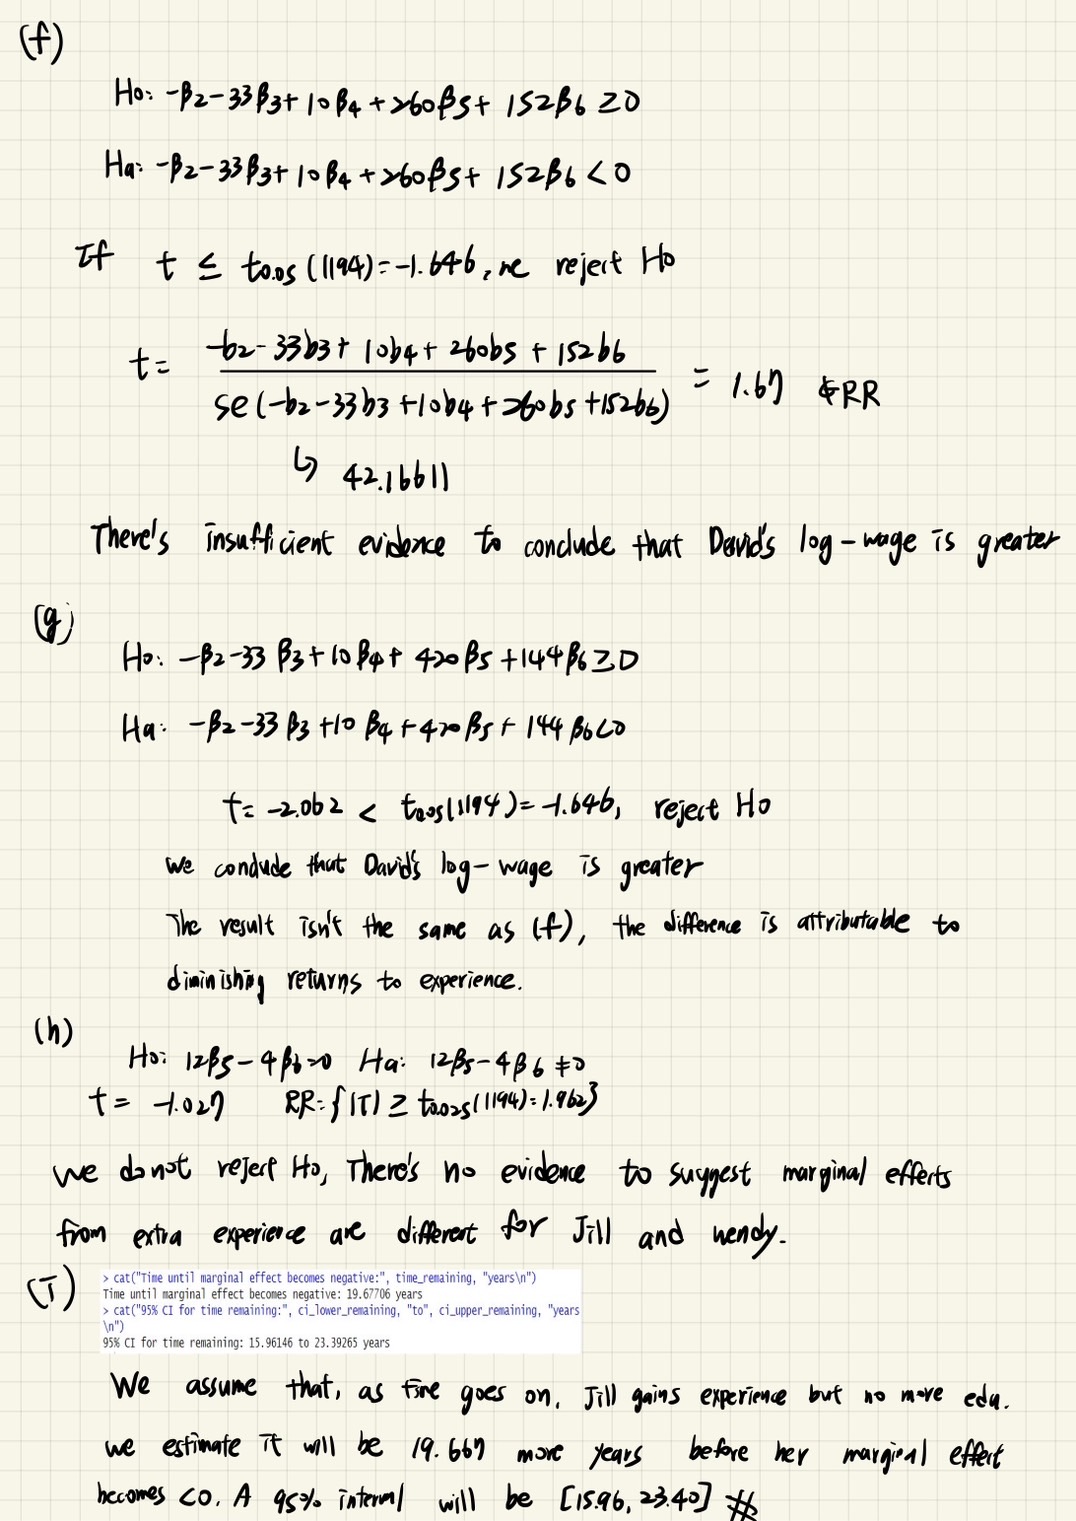 (f)
H0: -β2-33β3+10β4+260β5+152β6 ≥0
Ha: -β2-33β3+10β4+260β5+152β6 <0
If t ≤ t0.05(1194)=-1.646, we reject H0
t= -b2-33b3+10b4+260b5+152b6
se(-b2-33b3+10b4+260b5+152b6) = 1.67 ∉RR
↳ 42.16611
There's insufficient evidence to conclude that David's log-wage is greater
(g)
H0: -β2-33β3+10β4+420β5+144β6≥0
Ha: -β2-33β3+10β4+420β5+144β6<0
t= -2.062 < t0.05(1194)=-1.646, reject H0
We conclude that David's log-wage is greater
The result isn't the same as (f), the difference is attributable to
diminishing returns to experience.
(h)
H0: 12β5-4β6=0 Ha: 12β5-4β6≠0
t= -1.027 RR={|T| ≥ t0.025(1194)=1.962}
We do not reject H0, There's no evidence to suggest marginal effects
from extra experience are different for Jill and Wendy.
(I)
> cat("Time until marginal effect becomes negative:", time_remaining, "years\n")
Time until marginal effect becomes negative: 19.67706 years
> cat("95% CI for time remaining:", ci_lower_remaining, "to", ci_upper_remaining, "years
\n")
95% CI for time remaining: 15.96146 to 23.39265 years
We assume that, as time goes on, Jill gains experience but no more edu.
we estimate it will be 19.667 more years before her marginal effect
becomes <0. A 95% interval will be [15.96, 23.40] #